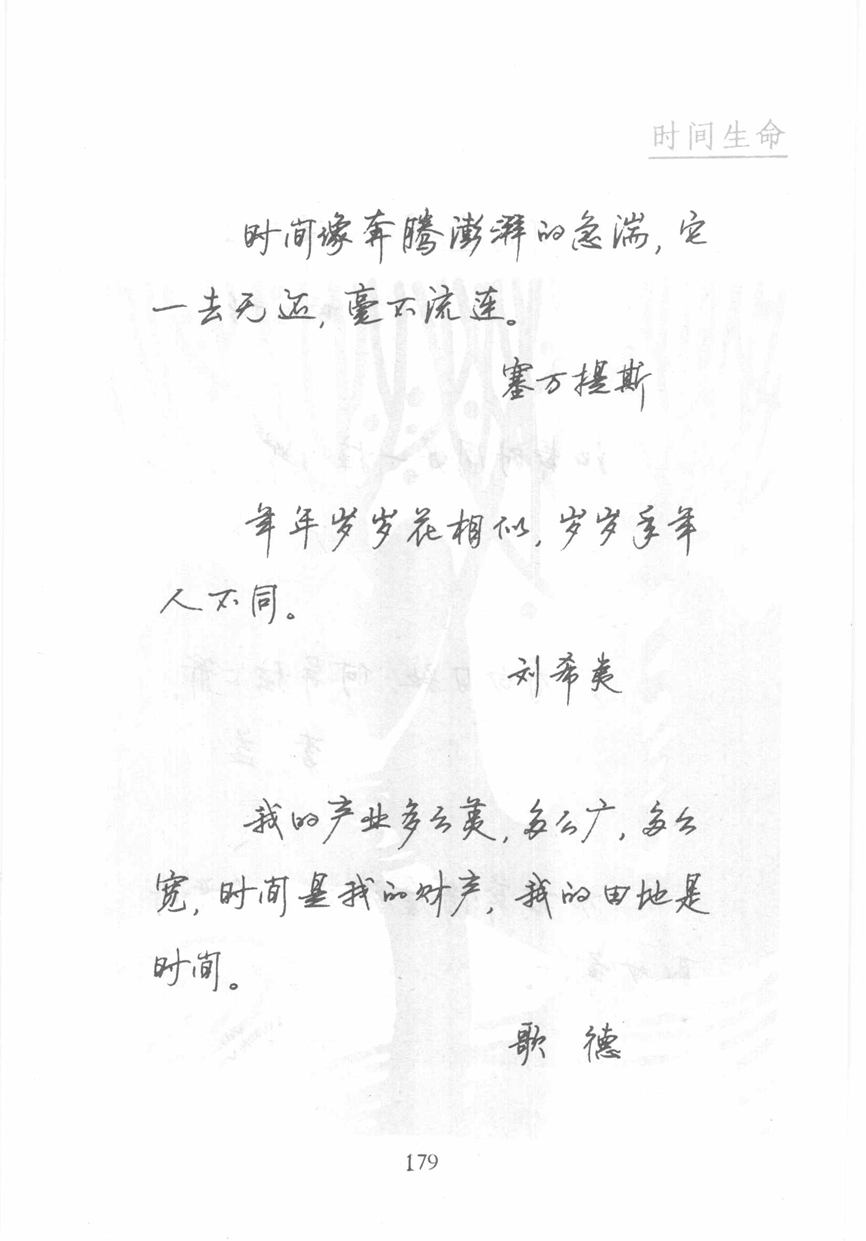 时间生命
时间像奔腾澎湃的急湍，它
一去无返，毫不流连。
塞万提斯
年年岁岁花相似，岁岁年年
人不同。
刘希夷
我的产业多么美，多么广，多么
宽，时间是我的财产，我的田地是
时间。
歌 德
179